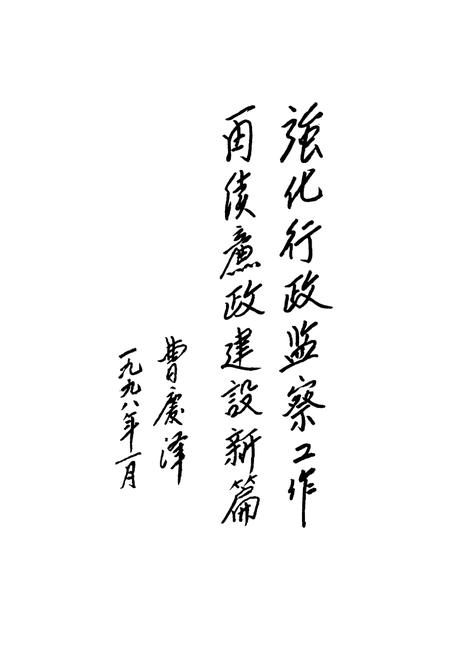 強化行政监察工作
再续廉政建設新篇
曹慶泽
一九九八年一月